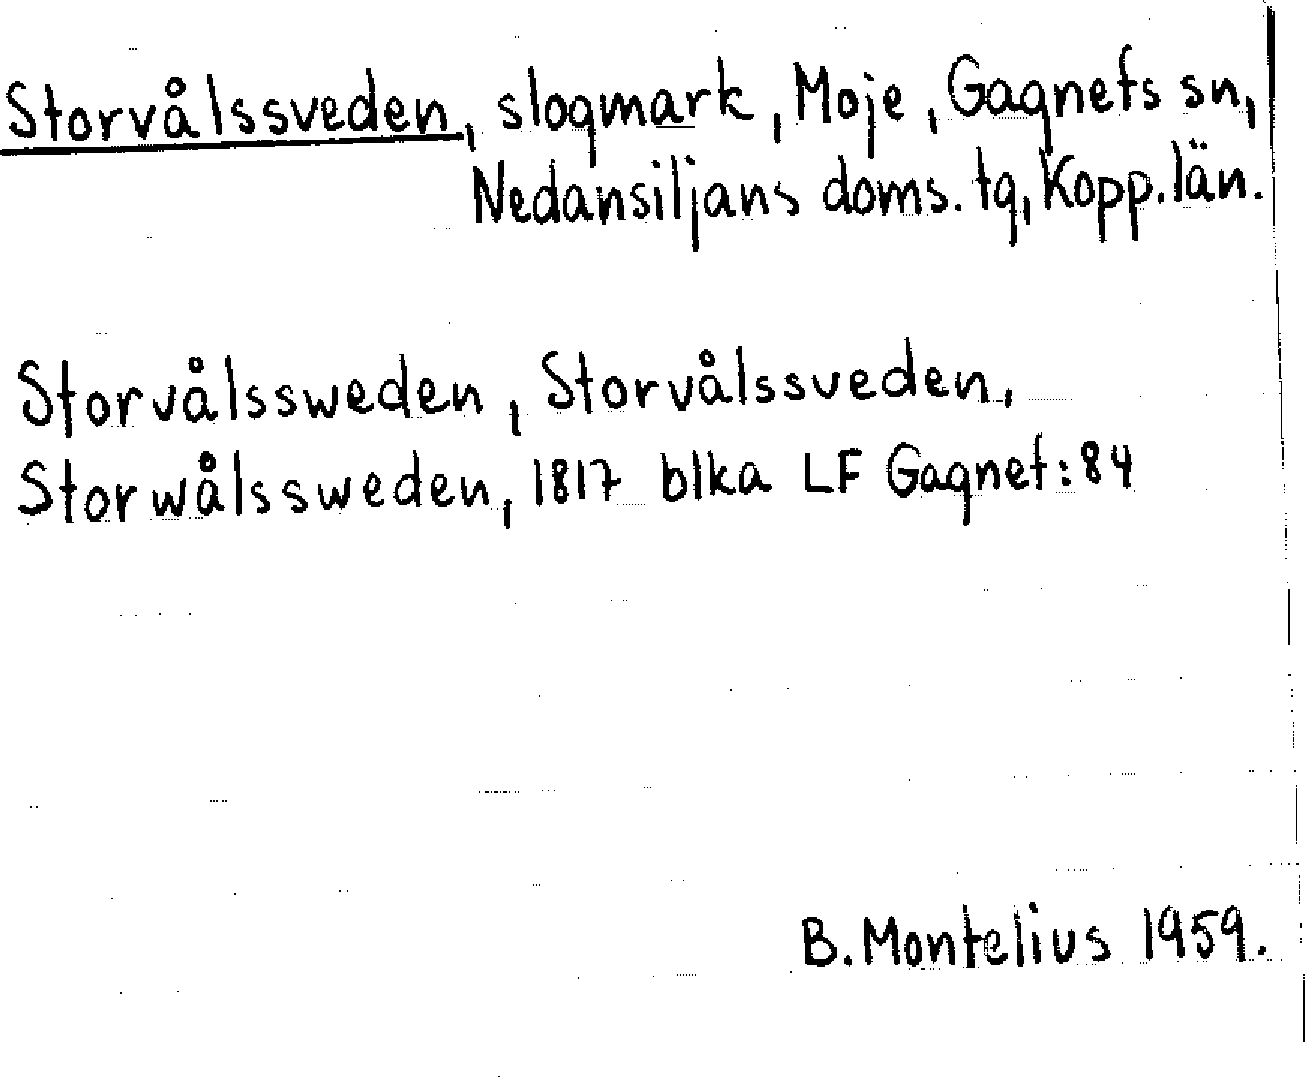 Storvålssveden, slogmark, Moje, Gagnefs sn,
Nedansiljans doms. tg, Kopp. län.
Storvålssweden, Storvålssveden,
Storwålssweden, 1817 blka LF Gagnef:84
B. Montelius 1959.